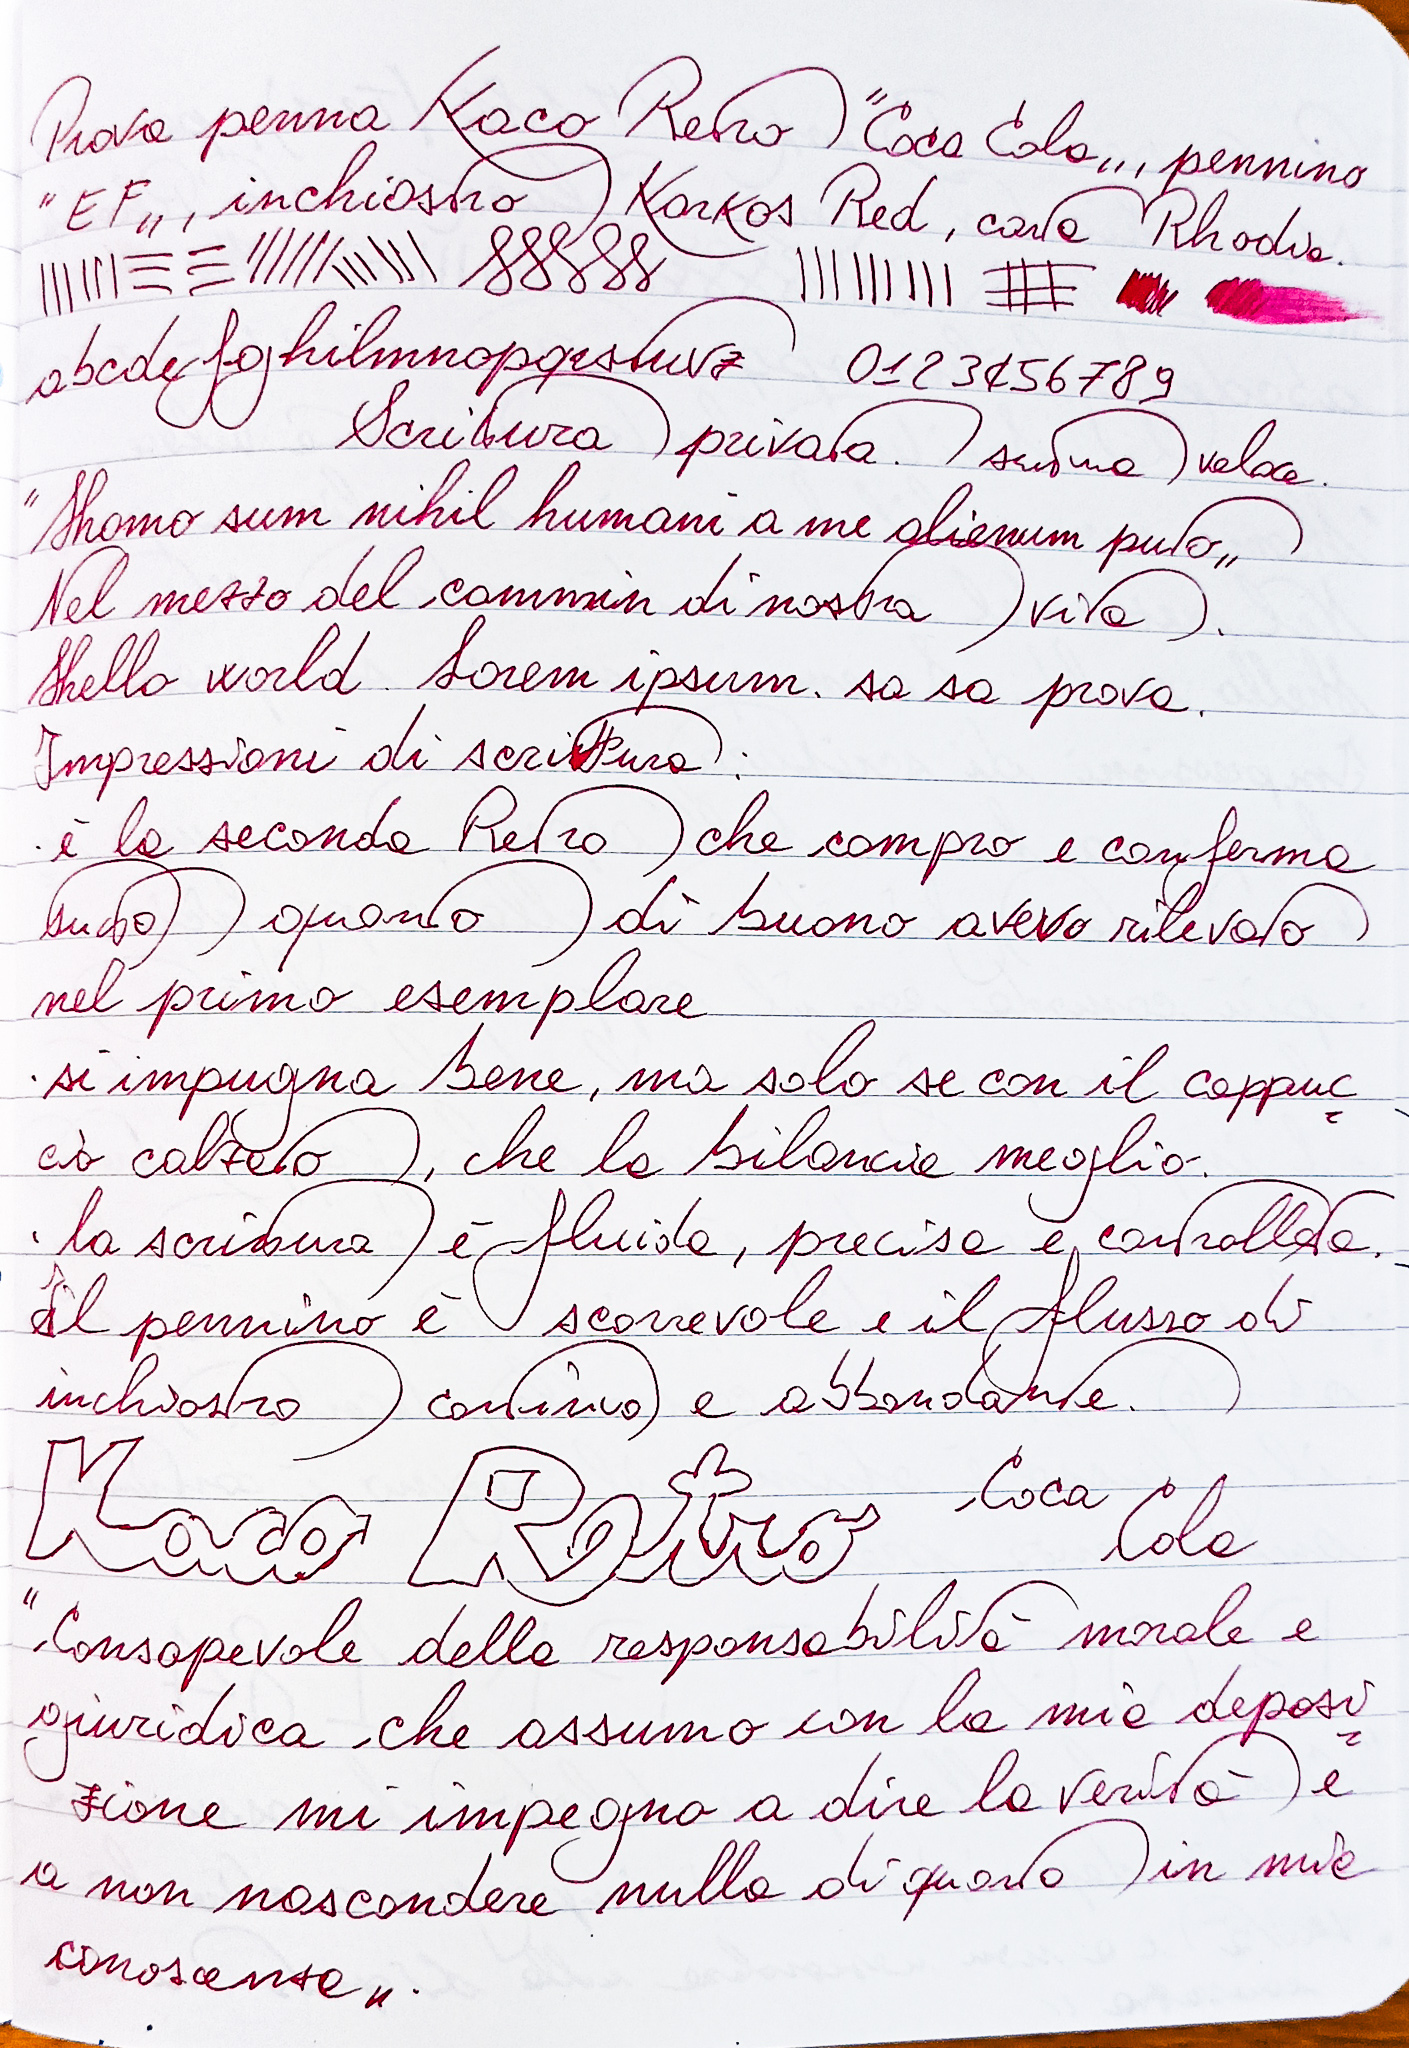 Prova penna Kaco Retro "Coca Cola", pennino
"EF", inchiostro Karkos Red, carta Rhodia.
abcdefghilmnopqrstuvz 0123456789
Scrittura privata. veloce.
"Homo sum nihil humani a me alienum puto"
Nel mezzo del cammin di nostra vita.
Hello world. Lorem ipsum. sa sa prova.
Impressioni di scrittura:
· è la seconda Retro che compro e conferma
tutto quanto di buono avevo rilevato
nel primo esemplare
· si impugna bene, ma solo se con il cappuc
cio calzato, che la bilancia meglio.
· la scrittura è fluida, precisa e controllata.
Il pennino è scorrevole e il flusso di
inchiostro continuo e abbondante.
Kaco Retro Coca
Cola
"Consapevole della responsabilità morale e
giuridica che assumo con la mia deposi
zione mi impegno a dire la verità e
a non nascondere nulla di quanto in mia
conoscenza".